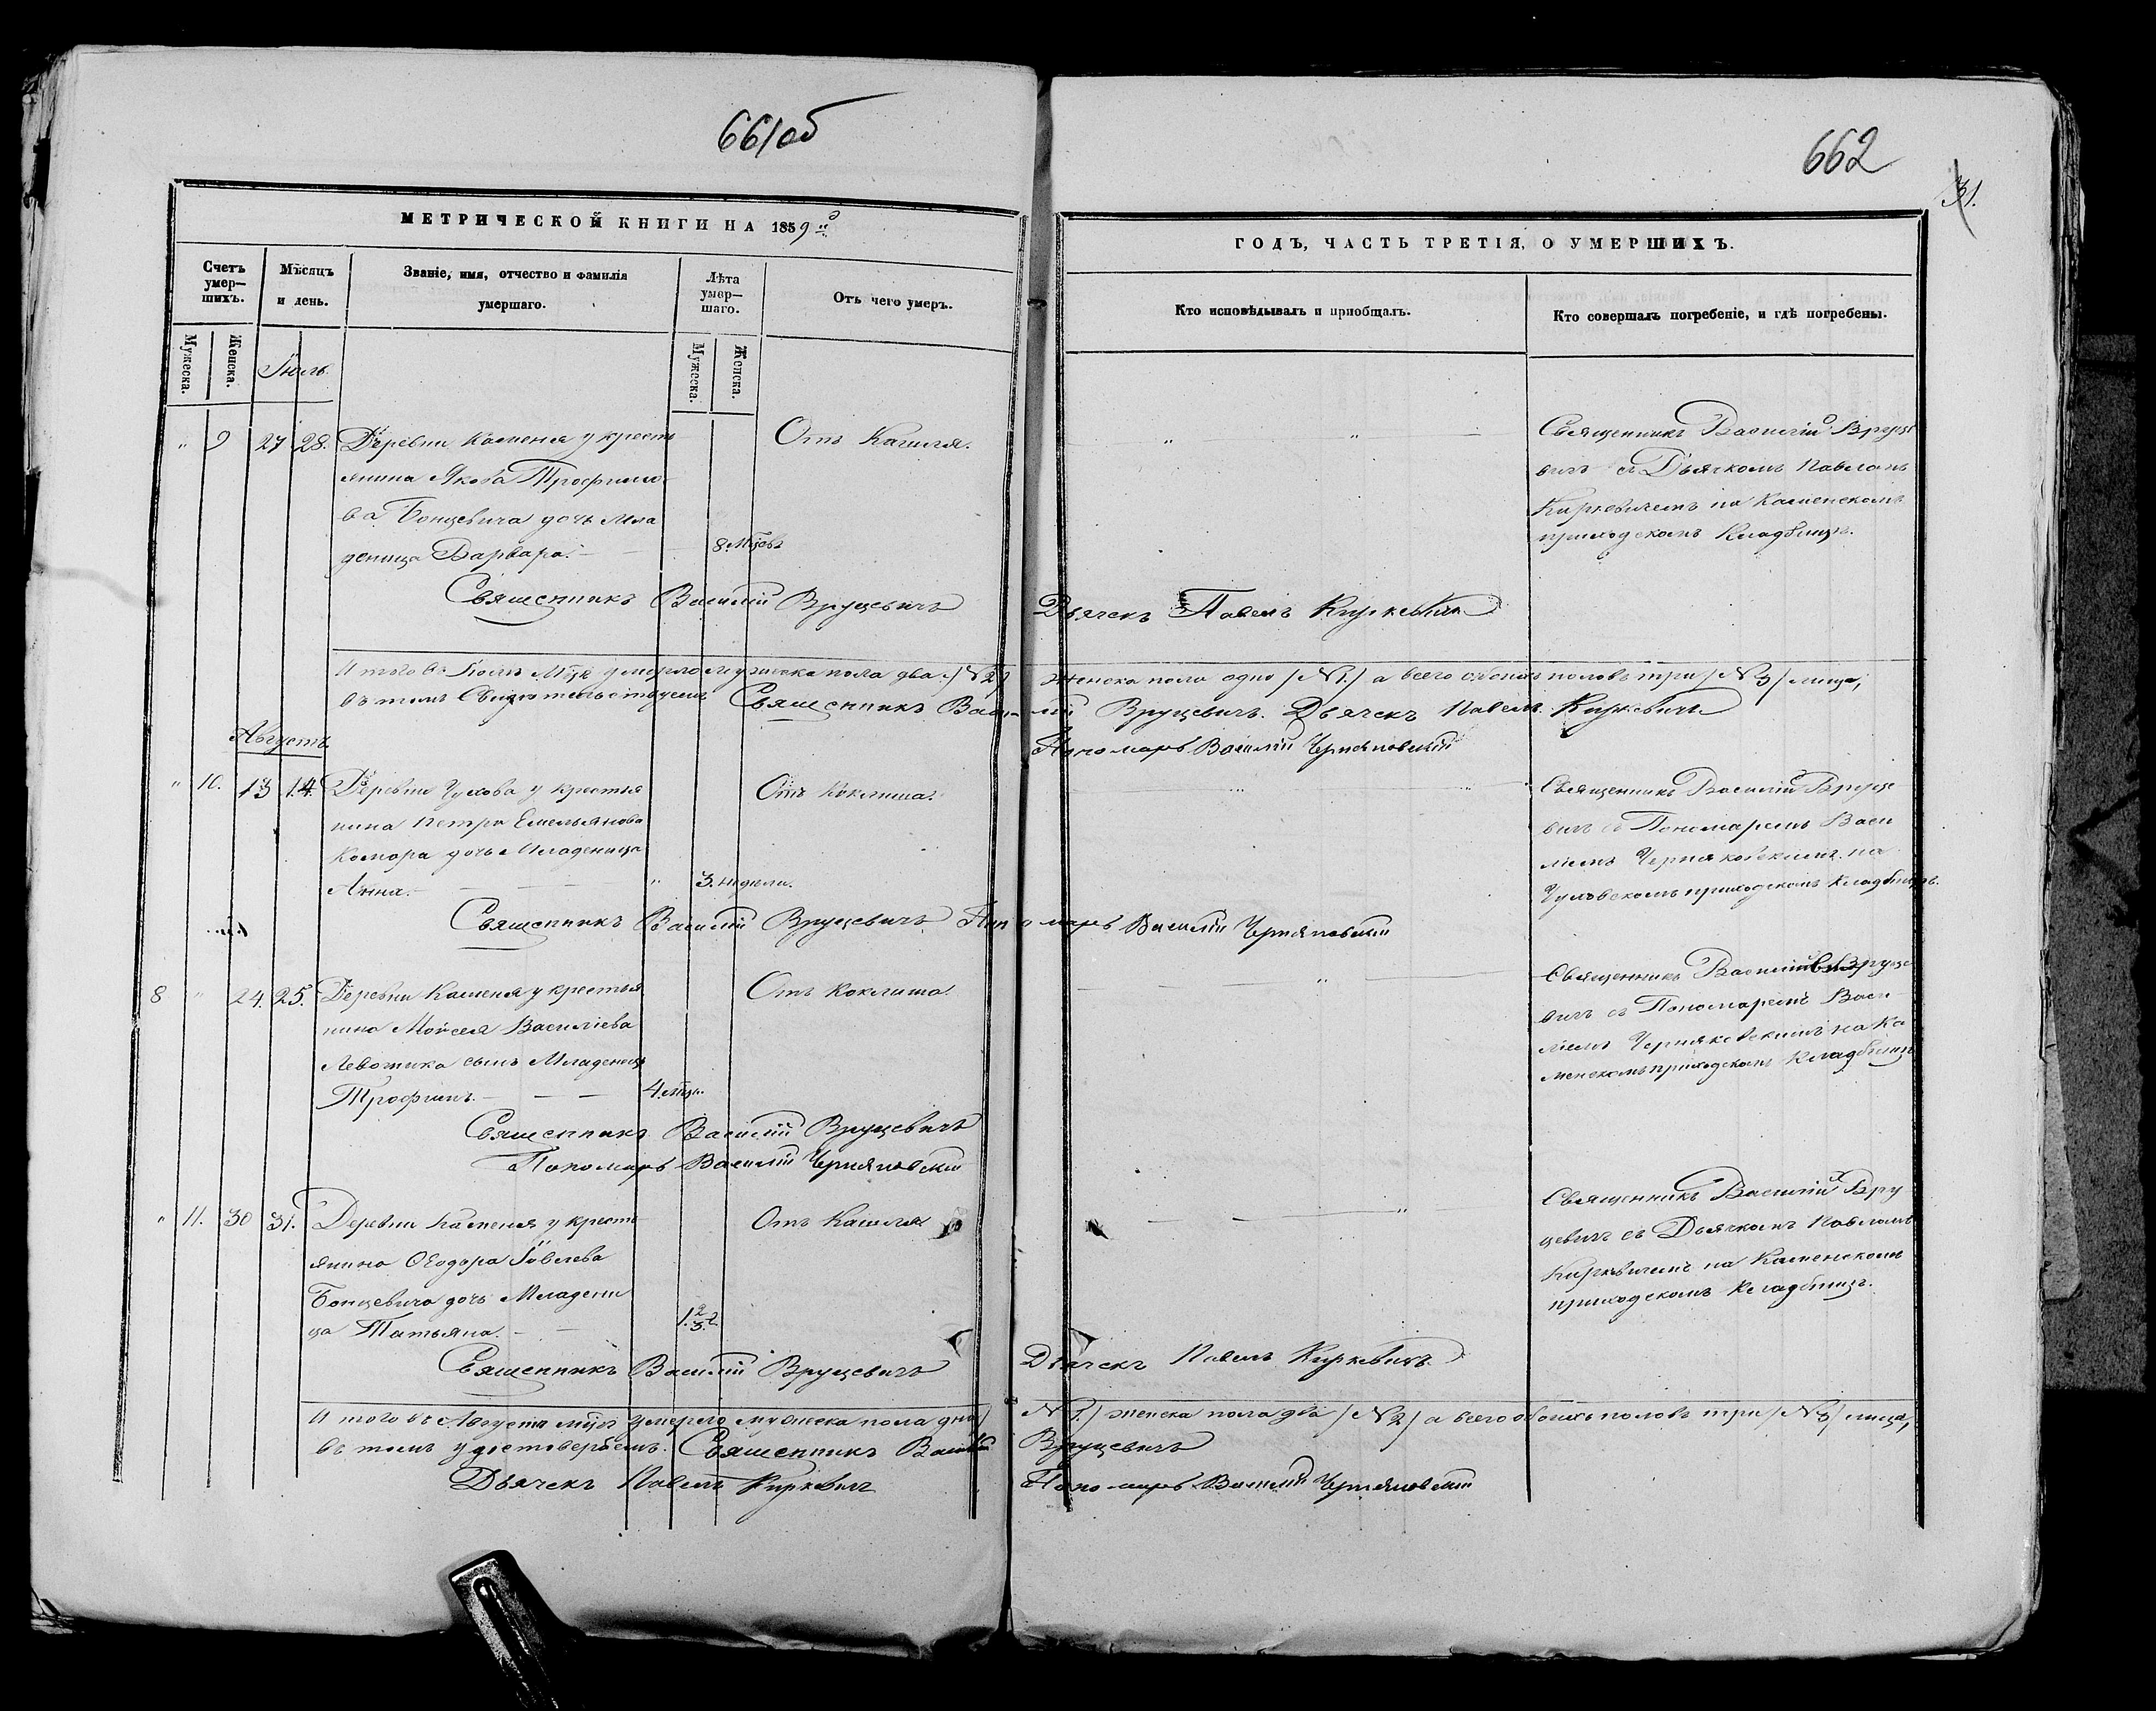 661об
662
31.
МЕТРИЧЕСКОЙ КНИГИ НА 1859й
ГОДЪ, ЧАСТЬ ТРЕТІЯ, О УМЕРШИХЪ.
Счетъ умер—шихъ.
Мѣсяцъ и день.
Званіе, имя, отчество и фамилія умершаго.
Лѣта умер—шаго.
Отъ чего умеръ.
Кто исповѣдывалъ и пріобщалъ.
Кто совершалъ погребеніе, и гдѣ погребены.
Мужеска.
Женска.
Мужеска.
Женска.
Іюль
" 9 27 28. Деревни Каменя у кресть
янина Якова Трофимо
ва Бонцевича дочь Мла
деница Варвара. 8. Мцовъ
Отъ Кашля.
Священникъ Василій Вруце
вичъ съ Дьячкомъ Павломъ
Киркевичемъ на Каменскомъ
приходскомъ Кладбищѣ.
Священникъ Василій Вруцевичъ Дьячекъ Павелъ Киркевичъ
И того въ Іюлѣ Мцѣ умерло мужеска пола два /№2/ женска пола одно /№1./ а всего обоихъ половъ три /№3/ лица,
въ томъ Свидѣтельствуемъ Священникъ Васи-лій Вруцевичъ. Дьячекъ Павелъ Киркевичъ
Пономарь Василій Черняковскій
Августъ
" 10. 13 14. Деревни Чухова у крестья
нина Петра Емельянова
Комора дочь Младеница
Анна. " 3. недѣли.
Отъ Коклюша.
Священникъ Василій Вруце
вичъ съ Пономаремъ Васи
ліемъ Черняковскимъ на
Чуховскомъ приходскомъ Кладбищѣ.
Священникъ Василій Вруцевичъ Пономарь Василій Черняковскій
8 " 24. 25. Деревни Каменя у крестья
нина Мойсея Василіева
Левошка сынъ Младенецъ
Трофимъ. 4. мцы.
Отъ Коклюша.
Священникъ Василій Вруце
вичъ съ Пономаремъ Васи
ліемъ Черняковскимъ на Ка
менскомъ приходскомъ Кладбищѣ
Священникъ Василій Вруцевичъ
Пономарь Василій Черняковскій
" 11. 30 31. Деревни Каменя у кресть
янина Ѳеодора Іовлева
Бонцевича дочь Младени
ца Татьяна.
Отъ Кашля
Священникъ Василій Вру
цевичъ съ Дьячкомъ Павломъ
Киркевичемъ на Каменскомъ
приходскомъ Кладбищѣ.
Священникъ Василій Вруцевичъ Дьячекъ Павелъ Киркевичъ
И того въ Августѣ мцѣ умерло мужеска пола одно / №1./ женска пола два / №2/ а всего обоихъ половъ три / №3/ лица,
въ томъ удостовѣряемъ. Священникъ Василій Вруцевичъ
Дьячекъ Павелъ Киркевичъ Пономарь Василій Черняковскій